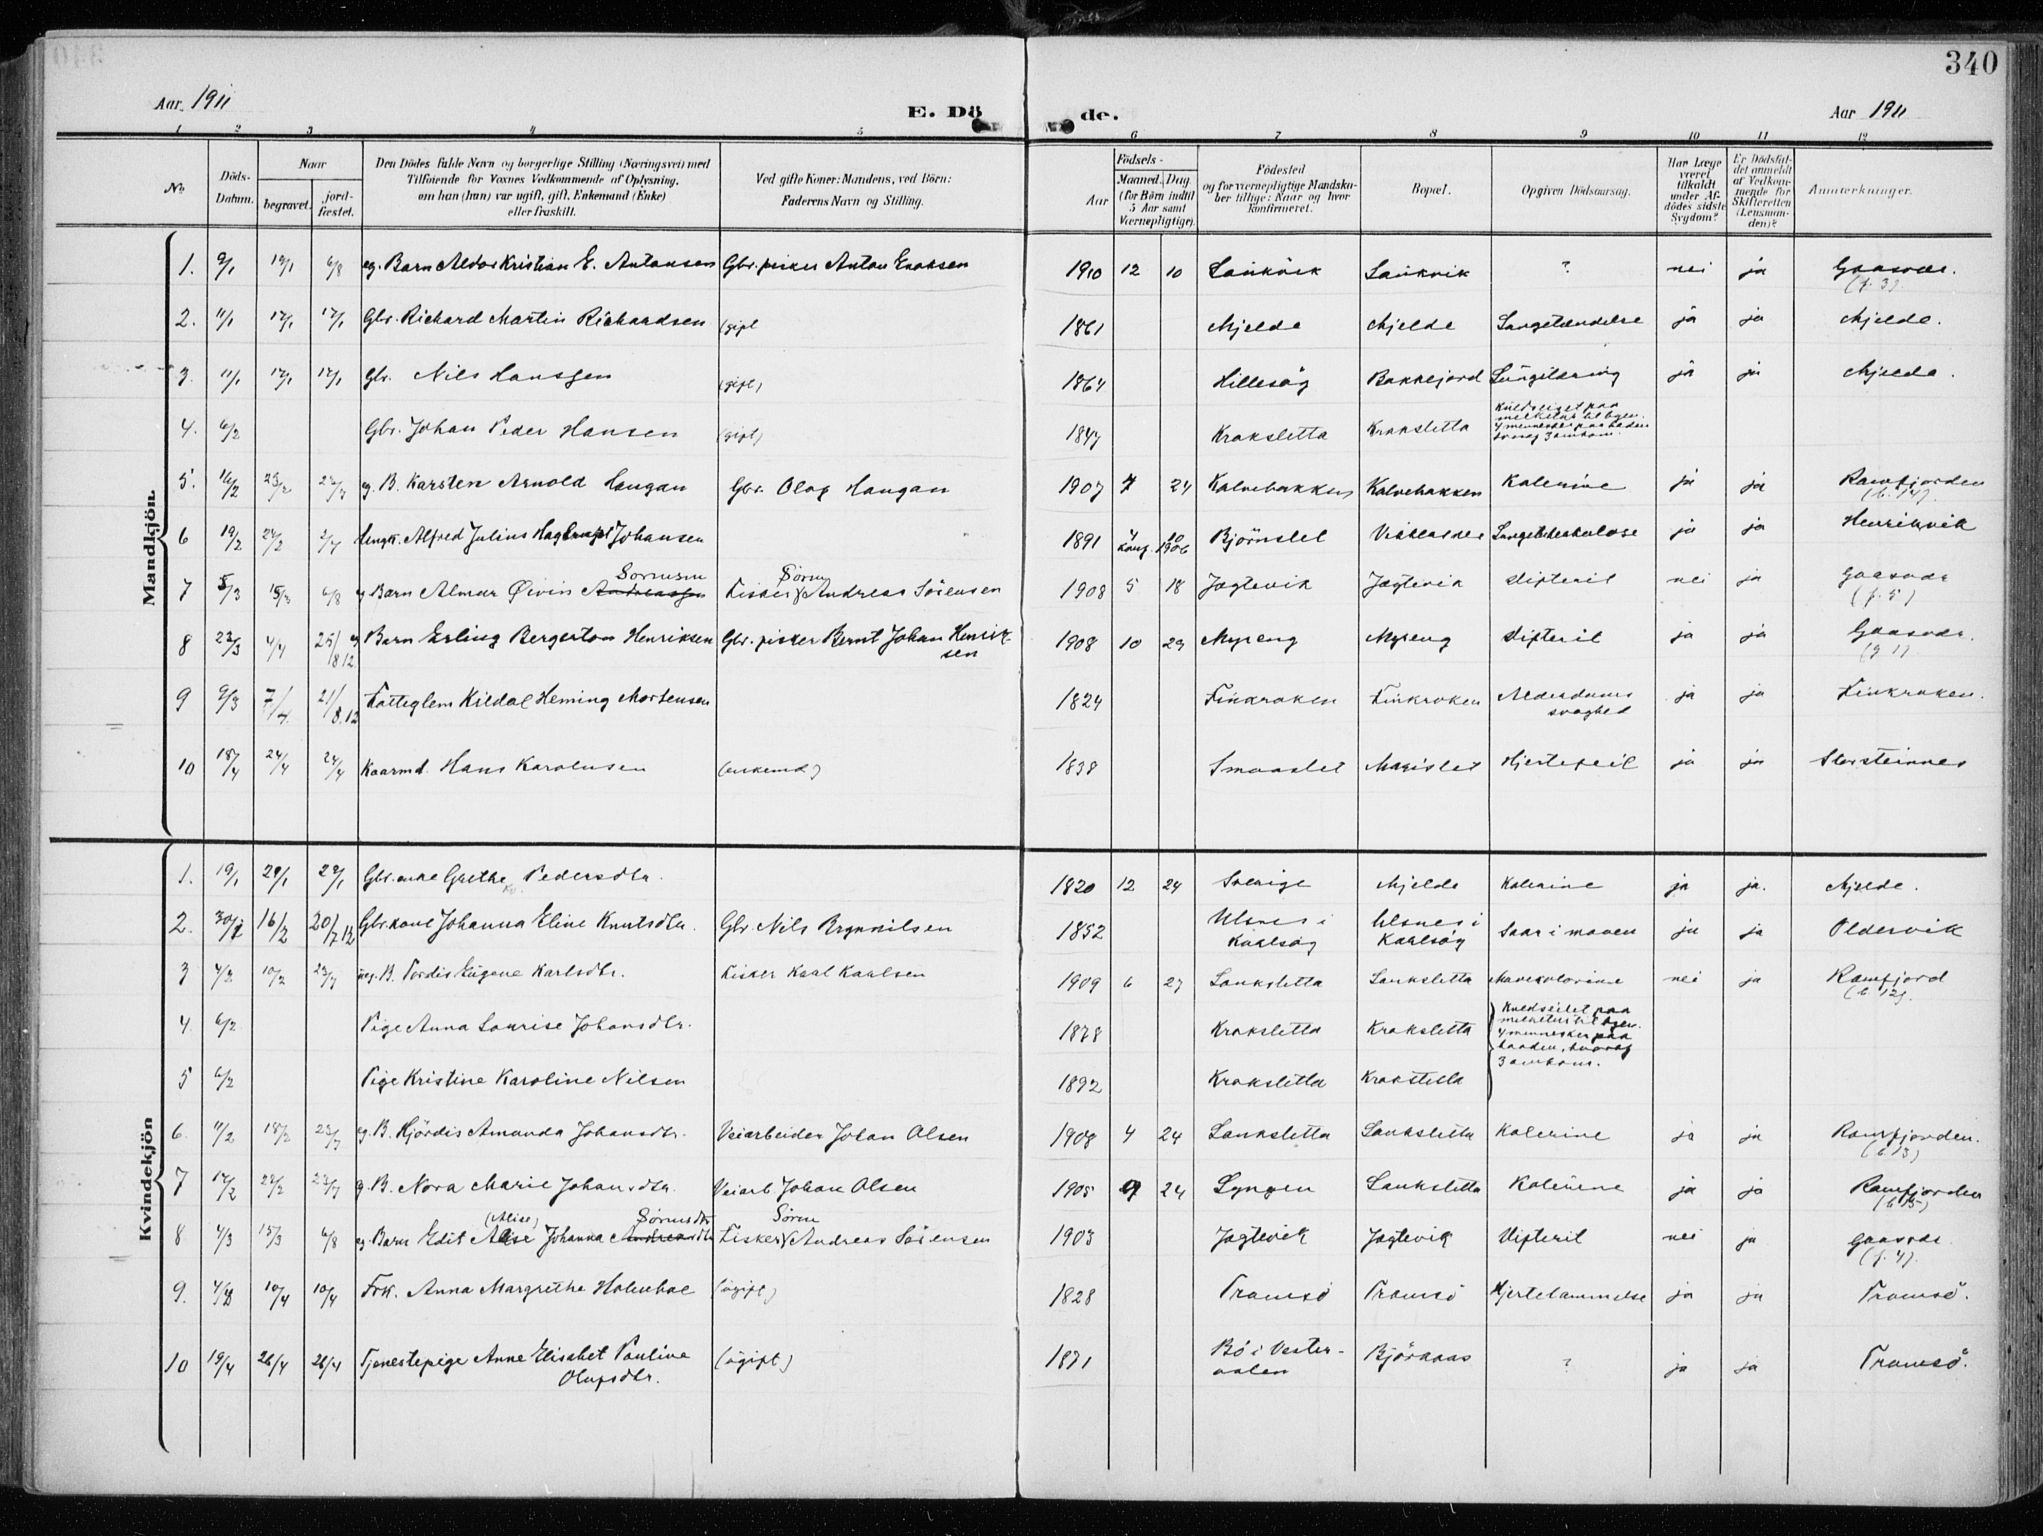 340
Aar 1911
E. Dö
de.
Aar 1911
1 2 3 4 5 6 7 8 9 10 11 12
No
Döds-Datum.
Naar
begravet.
jord-fæstet.
Den Dödes fulde Navn og borgerlige Stilling (Næringsvei) med
Tilföiende for Voxnes Vedkommende af Oplysning,
om han (hun) var ugift, gift, Enkemand (Enke)
eller fraskilt.
Ved gifte Koner: Mandens, ved Börn:
Faderens Navn og Stilling.
Födsels-
Aar
Maaned. Dag
(for Börn indtil
5 Aar samt
Værnepligtige).
Födested
og for værnepligtige Mandska-
ber tillige: Naar og hvor
konfirmeret.
Bopæl.
Opgiven Dödsaarsag.
Har Læge
været
tilkaldt
under Af-
dödes sidste
Sygdom?
Er Dödsfal-
det anmeldt
af Vedkom-
mende for
Skifteretten
(Lensman-
den)?
Anmærkninger.
Mandkjön.
1. 9/1 19/1 6/8 eg. Barn Aldor Kristian E. Antonsen Gbr. fisker Anton Enoksen 1910 12 10 ? nei ja Gaasvær.
(f. 3)
2. 11/1 17/1 17/1 Gbr. Richard Martin Richardsen (gift 1861 Mjelde Mjelde Lungebetændelse ja ja Mjelde.
3. 11/1 17/1 17/1 Gbr. Nils Hansen (gift) 1864 Hillesøy Bakkejord ja ja Mjelde.
4. 6/2 Gbr. Johan Peder Hansen (gift) 1847 Kraksletta Kraksletta Kuldseilet paa
4 mennesker paa baaden
hvorav 3 omkom.
5. 16/2 23/2 23/7 eg. B. Karsten Arnold Haugan Gbr. Olaf Haugan 1907 7 24 Kalvebakken Kalvebakken Kolerine ja ja Ramfjorden
(b. 14).
6 19/2 24/2 Ungk. Alfred Julius Hagbrupt Johansen 1891 Bjørnslet Lungetuberkulose ja ja Henrikvik
7 5/3 15/3 6/8 eg Barn Almar Øivin Andreassen Sørensen Fisker Søren Andreas Sörensen 1908 5 18 Jægtevik Jægtevik Difterit nei ja Gaasvær
(f. 5)
8 23/3 4/4 25/8 12 eg Barn Erling Bergerton Henriksen Gbr. fisker Bernt Johan Henrik-
sen 1908 10 29 Myreng Myreng Difterit ja ja Gaasvær.
9 9/3 7/4 21/8.12 Fatteglem Kildal Heming Mortensen 1824 Finkroken Finkroken Alderdoms
svaghed ja ja Finkroken.
10 18/4 24/4 24/4 Kaarmd. Hans Karolusen (enkemd) 1838 Smaaslet Hjertefeil ja ja Storsteinnes
Kvindekjön
1. 19/1 29/1 29/1 Gbr.enke Grethe Pedersdtr. 1820 12 24 Sverige Mjelde Kolerine ja ja. Mjelde.
2. 30/1 16/2 20/7 12 Gbr.kone Johanna Eline Knutsdtr. Gbr. Nils Brynnilsen 1852 Ulsnes i
Karlsøy Ulsnes i
Karlsøy Saar i maven ja ja Oldervik
3 4/2 10/2 23/7 ueg. B. Tordis Eugene Karlsdtr. Fisker Karl Karlsen 1909 6 27 Lanksletta Lanksletta Mavekolerine nei ja Ramfjord
(b. 12).
4. 6/2 Pige Anna Lourise Johansdtr. 1878 Kraksletta Kraksletta Kuldseilet paa
4 mennesker paa
baaden, hvorav
3 omkom.
5 6/2 Pige Kristine Karoline Nilsen 1892 Kraksletta Kraksletta
6. 11/2 18/2 23/7 eg. B. Hjördis Amanda Johansdtr. Veiarbeider Johan Olsen 1908 4 24 Lanksletta Lanksletta Kolerine ja ja Ramfjorden.
(b. 13)
7 17/2 22/2 23/7 eg. B. Nora Marie Johansdtr. Veiarb. Johan Olsen 1905 9 24 Lyngen Lanksletta Kolerine ja ja Ramfjorden
(b. 15)
8 4/3 15/3 6/8 eg Barn Edit Alise (Alise) Johanna Andreasdtr Sørensdtr Fisker Søren Andreas Sörensen 1903 Jægtevik Jægtevik Difterit nei ja Gaasvær.
(f. 4).
9. 4/4 10/4 10/4 Frk. Anna Margrethe Holmboe (ugift) 1828 Tromsö Tromsö Hjertelammelse ja ja Tromsö.
10 19/4 26/4 26/4 Tjenestepige Anne Elisabet Pauline
Olufsdtr. (ugift) 1871 Bö i Vester-
aalen Björaaas ? ja ja Tromsö.